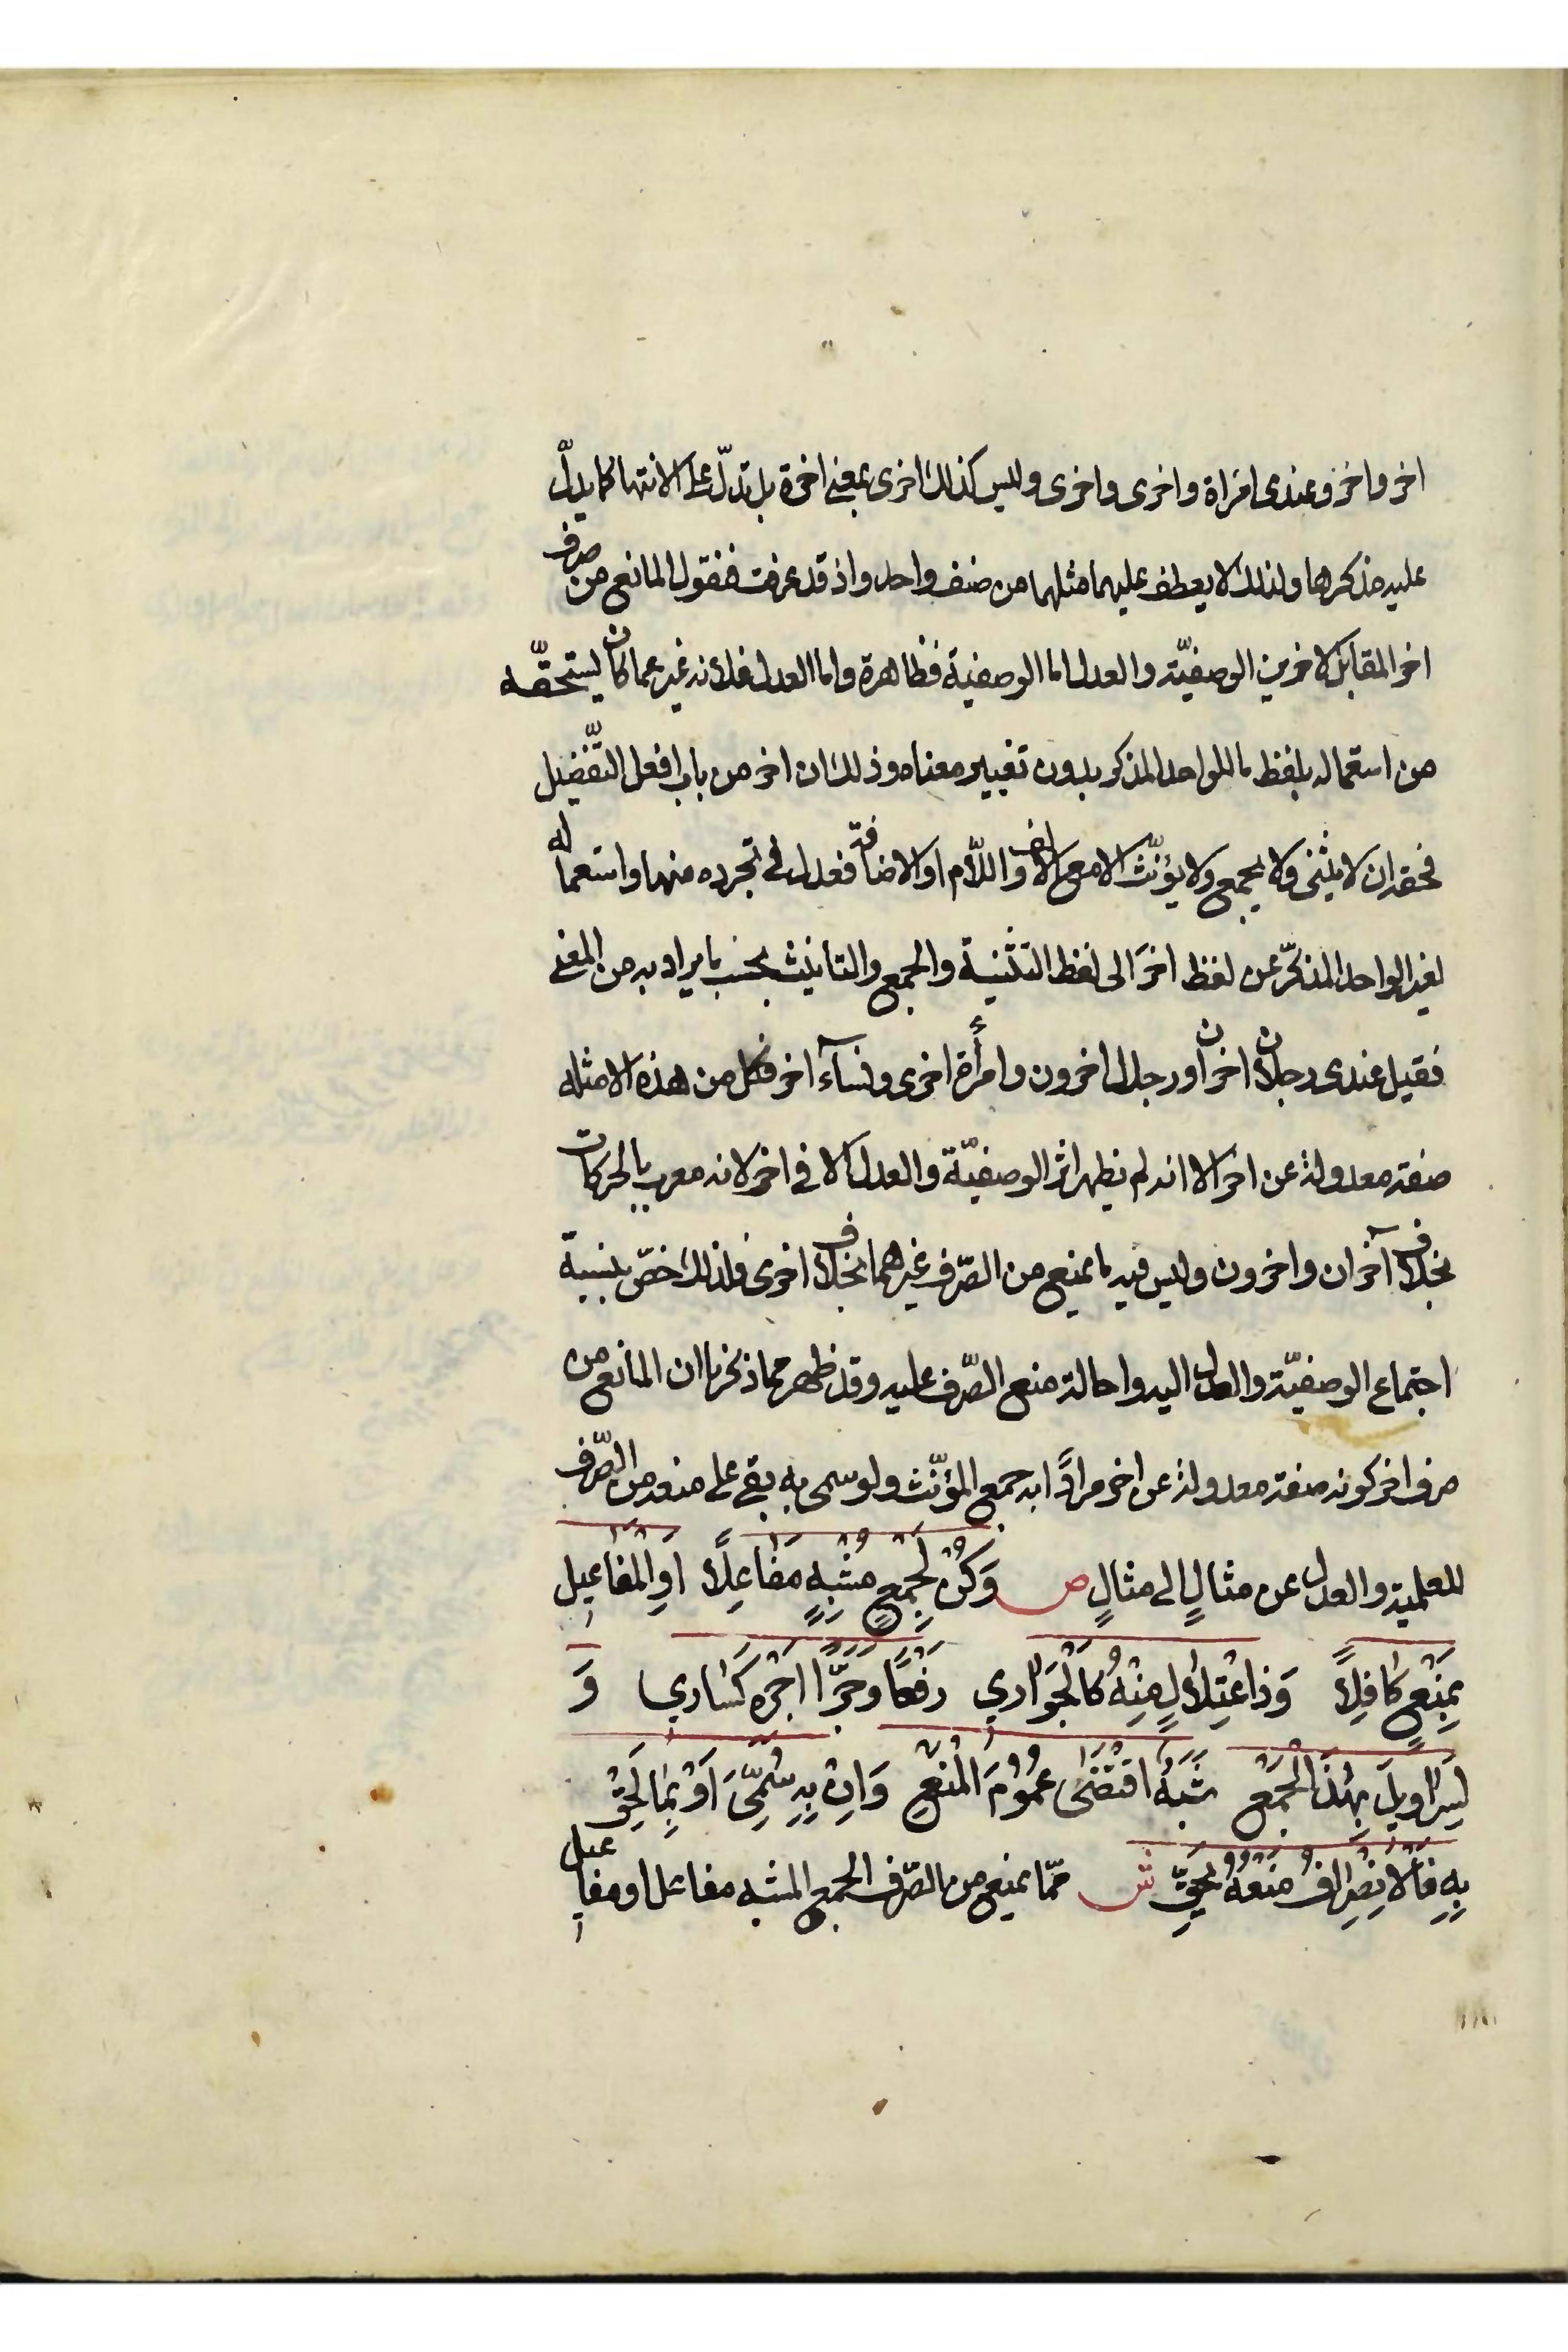 اخر واخر وعندى امراة واخرى واخرى وليس كذلك اخرى بمعنى اخرة بل تدلّ على الانتها كما يدلّ
عليه مذكرها ولذلك لا يعطف عليهما مثلهما من صنف واحد واذ قد عرفت فنقول المانع من صرف
اخر المقابل لاخرين الوصفيّة والعدل اما الوصفية فظاهرة واما العدل فلانه غير عما كان يستحقّه
من استعماله بلفظ ما للواحد المذكر بدون تغيير معناه وذلك ان اخر من باب افعل التّفضيل
فحقه ان لا يثنى ولا يجمع ولا يؤنّث الا مع الالف واللّام او الاضافة فعدل فى تجرده منهما واستعماله
لغير الواحد المذكّر عن لفظ اخَر الى لفظ التثنية والجمع والتانيث بحسب ما يراد به من المعنى
فقيل عندى رجلان اخران ورجال اخرون وامرأة اخرى ونسآء اخر فكل من هذه الامثله
صفة معدولة عن اخر الا انه لم يظهر اثر الوصفيّة والعدل الا فى اخر لانه معرب بالحركات
بخلاف آخران واخرون وليس فيه ما يمنع من الصّرف غيرهما بخلاف اخرى فلذلك خصّ بنسبة
اجتماع الوصفيّة والعدل اليه واحالة منع الصّرف عليه وقد ظهر مما ذكرنا ان المانع من
صرف اخر كونه صفة معدولة عن اخر مرادًا به جمع المؤنّث ولو سمى به بقى على منعه من الصّرف
للعلمية والعدل عن مثالٍ الى مثالٍ ص وَكُنْ لِجَمْعٍ مُشْبِهٍ مَفَاعِلًا اَوِ الْمَفَاعِيلِ
بِمَنْعٍ كَافِلًا وَذَا اعْتِلَالٍ مِنْهُ كَالْجَوَارِي رَفْعًا وَجَرًّا اَجْرِهِ كَسَارِي وَ
لِسَرَاوِيلَ بِهٰذَا الْجَمْعِ شَبَهٌ اقْتَضٰى عُمُوْمَ الْمَنْعِ وَاِنْ بِهِ سُمِّىَ اَوْ بِمَا لَحِقَ
بِهِ فَالْاِنْصِرَافُ مَنْعُهُ يَحِقّ ش ممّا يمنع من الصّرف الجمع المشبه مفاعل او مفاعيل